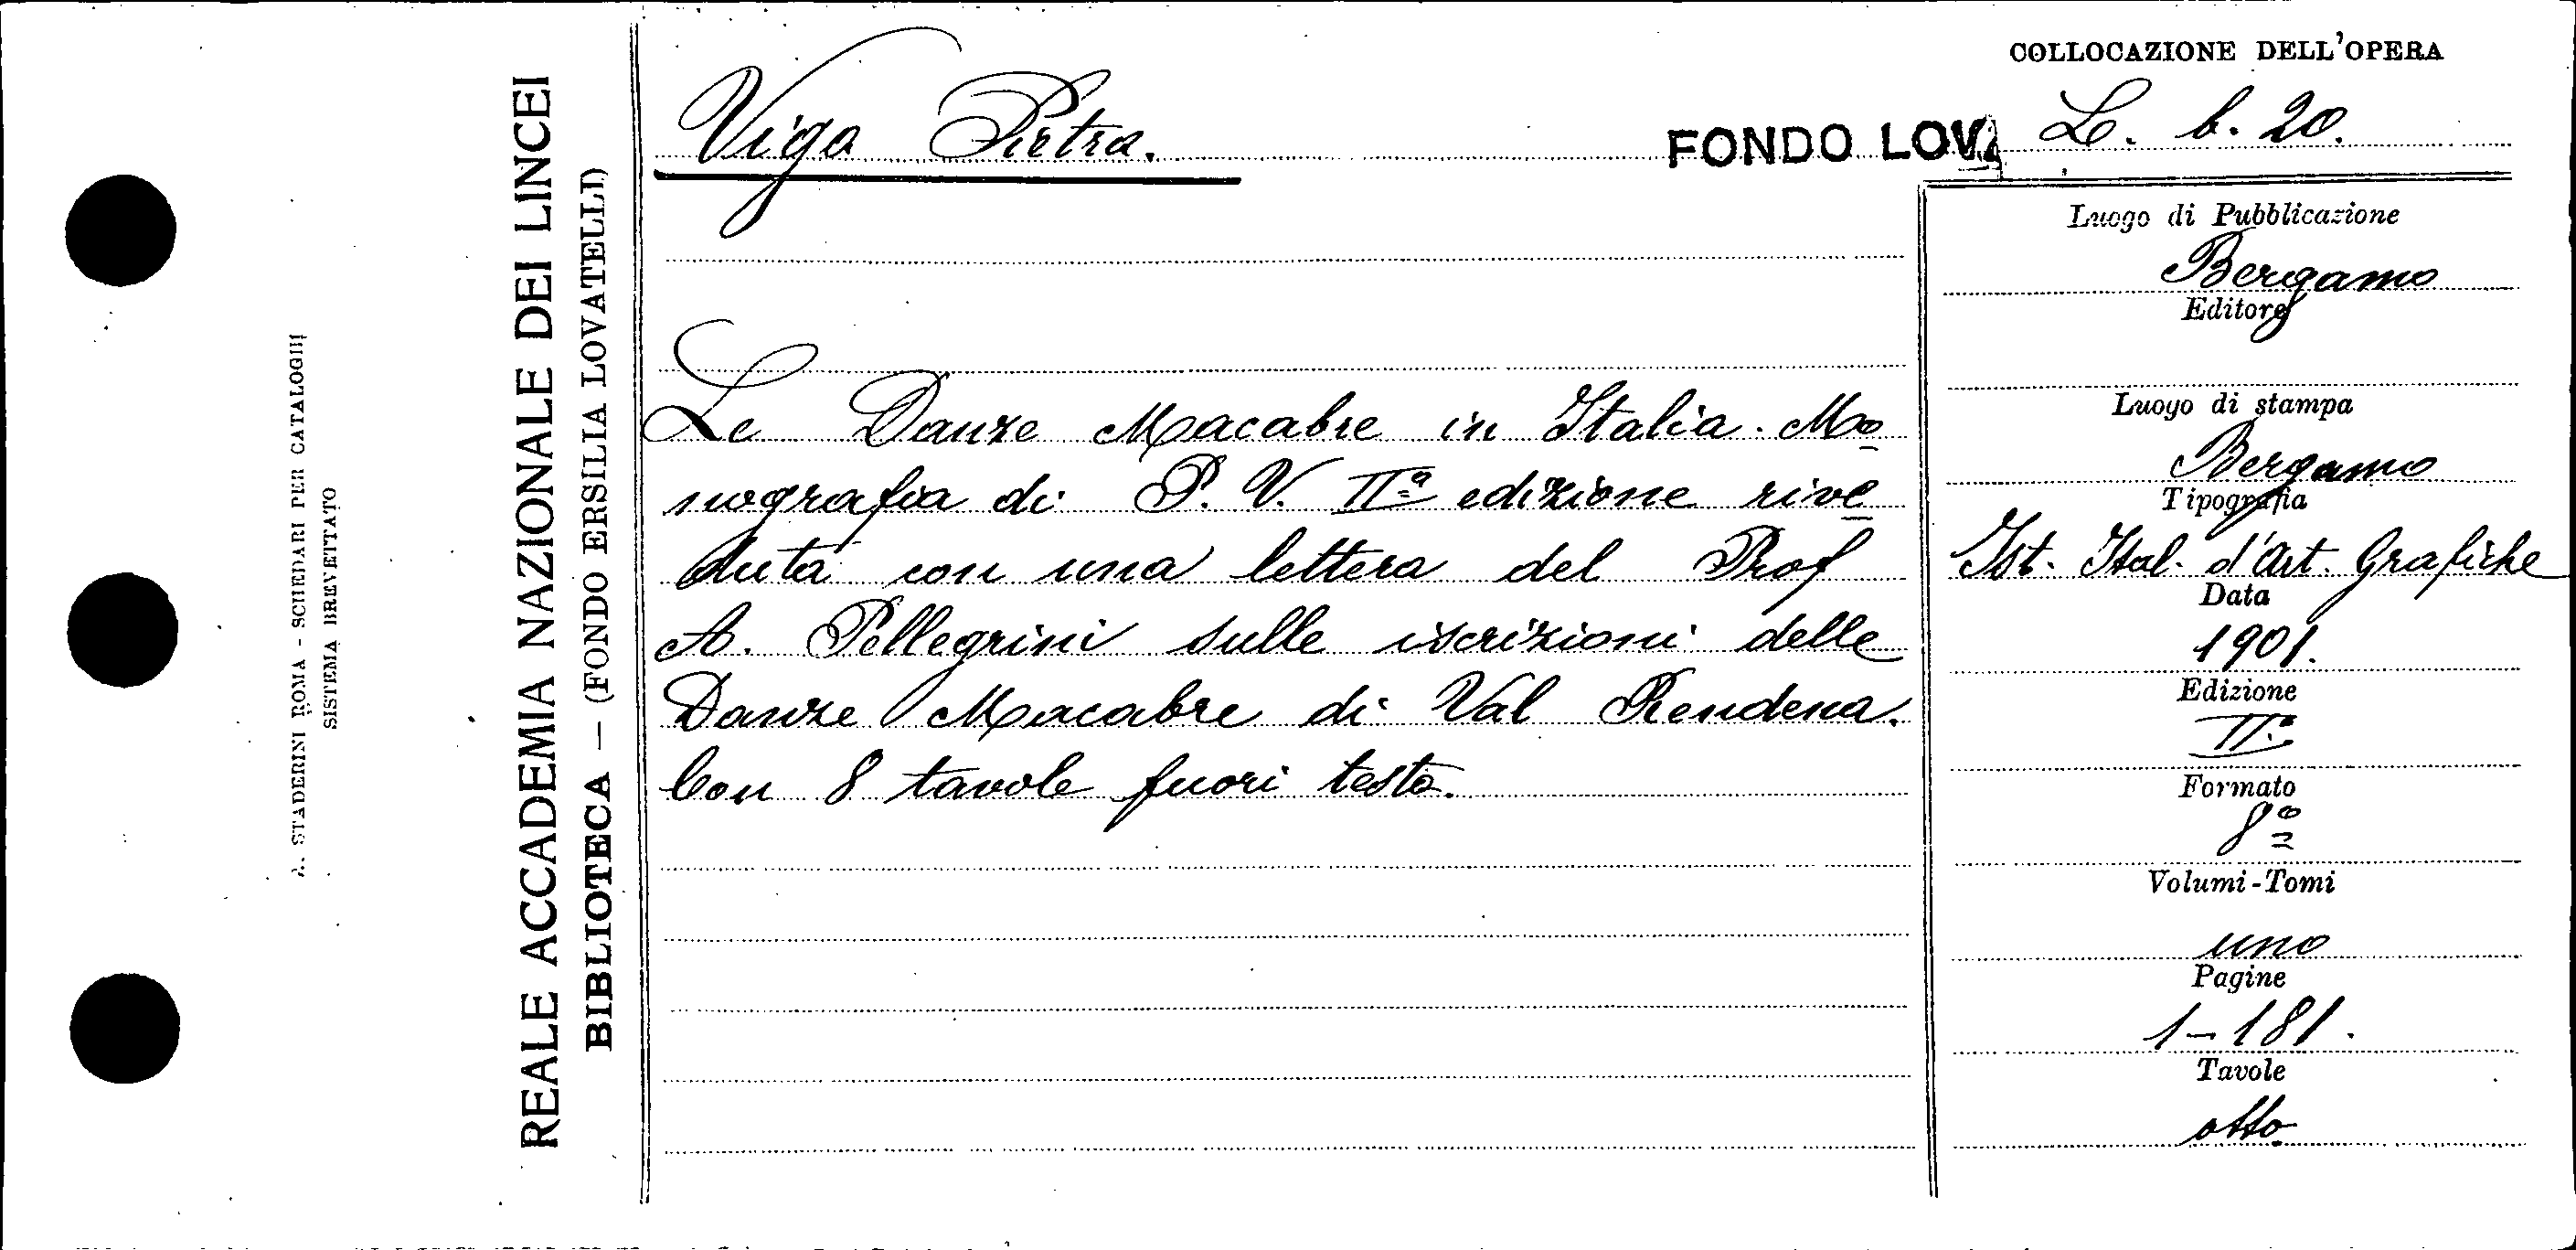 COLLOCAZIONE DELL'OPERA
Vigo Pietra.
FONDO LOV
L. b. 20.
Le Danze Macabre in Italia. Mo
nografia di P. V. IIª edizione rive
duta con una lettera del Prof
A. Pellegrini sulle iscrizioni delle
Danze Macabre di Val Rendena.
Con 8 tavole fuori testo.
Luogo di Pubblicazione
Bergamo
Editore
Luogo di stampa
Bergamo
Tipografia
Ist. Ital. d'Art. Grafiche
Data
1901.
Edizione
IIª
Formato
8º
Volumi-Tomi
uno
Pagine
1-181.
Tavole
otto
REALE ACCADEMIA NAZIONALE DEI LINCEI
BIBLIOTECA — (FONDO ERSILIA LOVATELLI)
A. STADERINI ROMA - SCHEDARI PER CATALOGHI
SISTEMA BREVETTATO